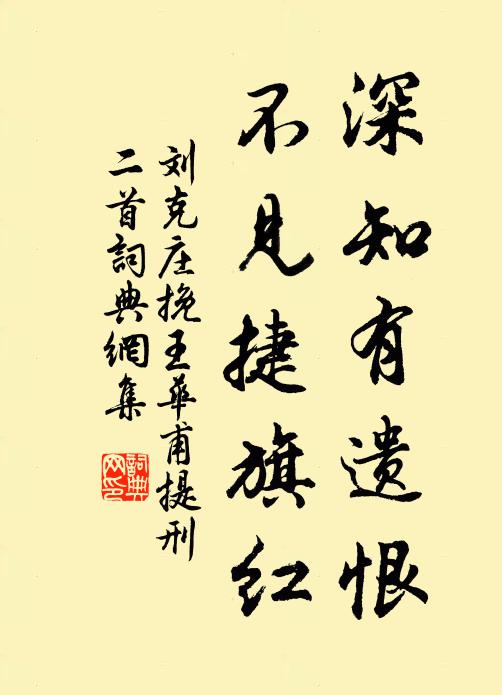 深知有遗恨
不见捷旗红
刘克庄挽王華甫提刑
二首詞典網集
詞典
网印